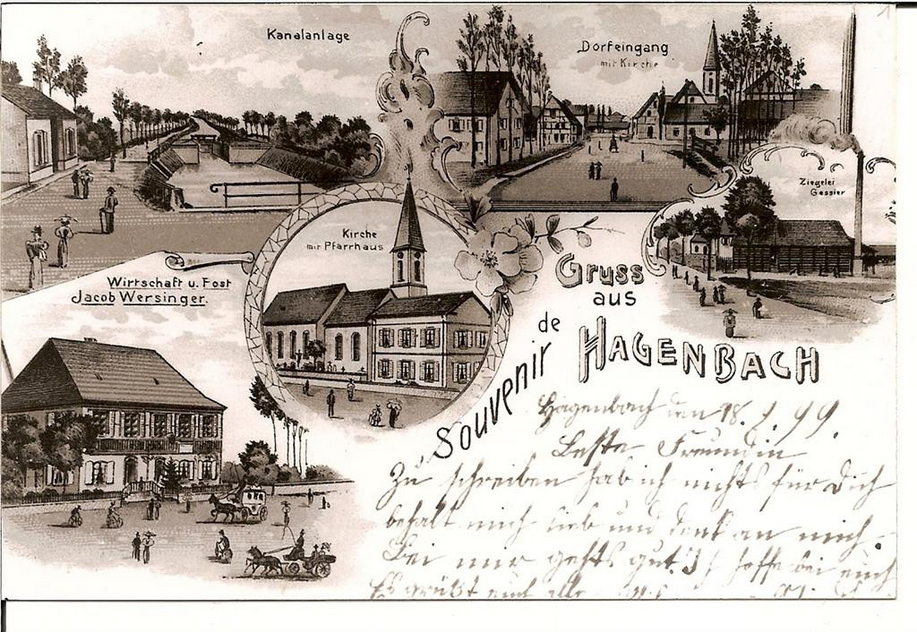 Kanalanlage
Dorfeingang
mit Kirche
Ziegelei
Gessier
Kirche
mit Pfarrhaus
Wirtschaft u. Post
Jacob Wersinger.
Gruss
aus
HAGENBACH
Souvenir de
Hagenbach den 18. 9. 99.
Beste Freundin
Zu schreiben hab ich nichts für Dich
behalt mich lieb und denk an mich.
Bei mir gehts gut. Ich hoffe bei euch
Es grüßt euch alle